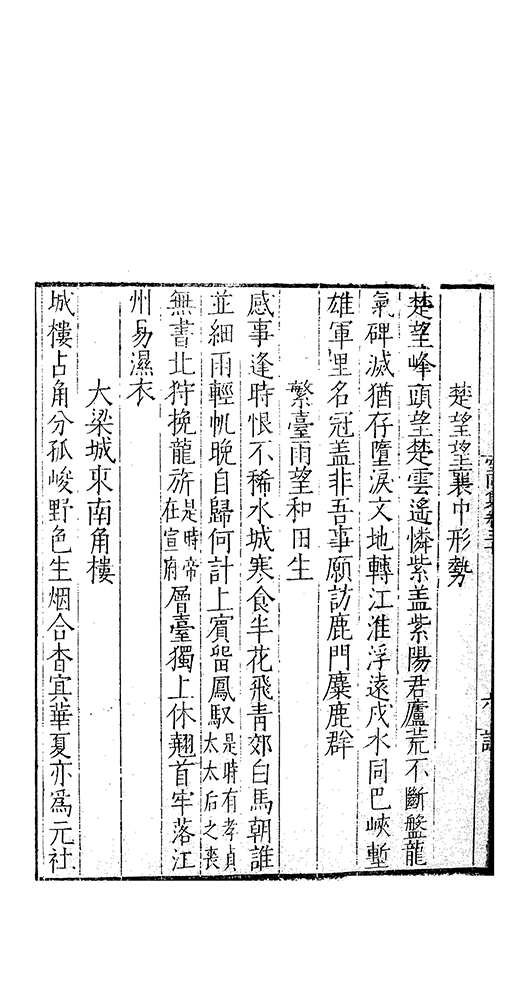 楚望望襄中形勢
楚望峰頭望楚雲遙憐紫盖紫陽君廬荒不斷盤龍
氣碑滅猶存墮淚文地轉江淮浮遠戍水同巴峽塹
雄軍里名冠盖非吾事願訪鹿門麋鹿群
繁臺雨望和田生
感事逢時恨不稀水城寒食半花飛青郊白馬朝誰
並細雨輕帆晚自歸何計上賓留鳳馭是時有孝貞太太后之喪
無書北狩挽龍旂是時帝在宣府層臺獨上休翹首牢落江
州易濕衣
大梁城東南角樓
城樓占角分孤峻野色生烟合杳冥華夏亦爲元社